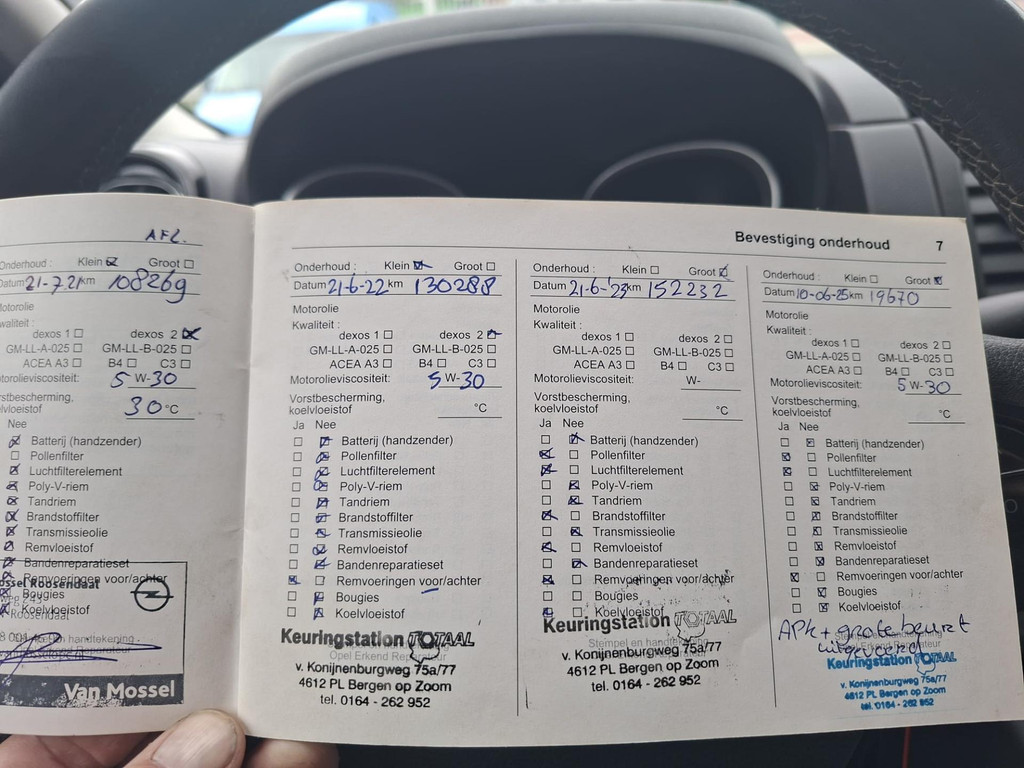 AFL.
Onderhoud : Klein ☒ Groot ☐
Datum 21-7-21 km 108269
Motorolie
Kwaliteit :
dexos 1 ☐ dexos 2 ☒
GM-LL-A-025 ☐ GM-LL-B-025 ☐
ACEA A3 ☐ B4 ☐ C3 ☐
Motorolieviscositeit: 5 W-30
Vorstbescherming,
koelvloeistof 30 °C
Nee
☒ Batterij (handzender)
☐ Pollenfilter
☒ Luchtfilterelement
☒ Poly-V-riem
☒ Tandriem
☒ Brandstoffilter
☒ Transmissieolie
☒ Remvloeistof
☒ Bandenreparatieset
☒ Remvoeringen voor/achter
☒ Bougies
☒ Koelvloeistof
Roosendaal
Van Mossel
Bevestiging onderhoud 7
Onderhoud : Klein ☒ Groot ☐
Datum 21-6-22 km 130288
Motorolie
Kwaliteit :
dexos 1 ☐ dexos 2 ☒
GM-LL-A-025 ☐ GM-LL-B-025 ☐
ACEA A3 ☐ B4 ☐ C3 ☐
Motorolieviscositeit: 5 W-30
Vorstbescherming,
koelvloeistof °C
Ja Nee
☐ ☒ Batterij (handzender)
☐ ☒ Pollenfilter
☐ ☒ Luchtfilterelement
☐ ☒ Poly-V-riem
☐ ☒ Tandriem
☐ ☒ Brandstoffilter
☐ ☒ Transmissieolie
☐ ☒ Remvloeistof
☐ ☒ Bandenreparatieset
☒ ☐ Remvoeringen voor/achter
☐ ☒ Bougies
☐ ☒ Koelvloeistof
Keuringstation TOTAAL
Opel Erkend Reparateur
v. Konijnenburgweg 75a/77
4612 PL Bergen op Zoom
tel. 0164 - 262 952
Onderhoud : Klein ☐ Groot ☒
Datum 21-6-'23 km 152232
Motorolie
Kwaliteit :
dexos 1 ☐ dexos 2 ☐
GM-LL-A-025 ☐ GM-LL-B-025 ☐
ACEA A3 ☐ B4 ☐ C3 ☐
Motorolieviscositeit: W-
Vorstbescherming,
koelvloeistof °C
Ja Nee
☐ ☒ Batterij (handzender)
☒ ☐ Pollenfilter
☒ ☐ Luchtfilterelement
☐ ☒ Poly-V-riem
☐ ☒ Tandriem
☒ ☐ Brandstoffilter
☐ ☒ Transmissieolie
☒ ☐ Remvloeistof
☐ ☒ Bandenreparatieset
☒ ☐ Remvoeringen voor/achter
☐ ☐ Bougies
☒ ☐ Koelvloeistof
Keuringstation TOTAAL
v. Konijnenburgweg 75a/77
4612 PL Bergen op Zoom
tel. 0164 - 262 952
Onderhoud : Klein ☐ Groot ☒
Datum 10-06-25 km 19670
Motorolie
Kwaliteit :
dexos 1 ☐ dexos 2 ☐
GM-LL-A-025 ☐ GM-LL-B-025 ☐
ACEA A3 ☐ B4 ☐ C3 ☐
Motorolieviscositeit: 5 W-30
Vorstbescherming,
koelvloeistof °C
Ja Nee
☐ ☒ Batterij (handzender)
☒ ☐ Pollenfilter
☒ ☐ Luchtfilterelement
☐ ☒ Poly-V-riem
☐ ☒ Tandriem
☐ ☒ Brandstoffilter
☐ ☒ Transmissieolie
☐ ☒ Remvloeistof
☐ ☒ Bandenreparatieset
☒ ☐ Remvoeringen voor/achter
☐ ☒ Bougies
☐ ☒ Koelvloeistof
APK + grote beurt
uitgevoerd
Keuringstation TOTAAL
v. Konijnenburgweg 75a/77
4612 PL Bergen op Zoom
tel. 0164 - 262 952